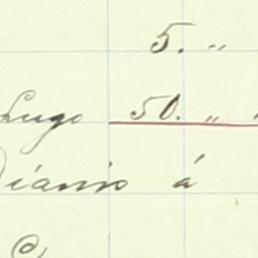 5. "
Lugo 50. " "
Diario á
@